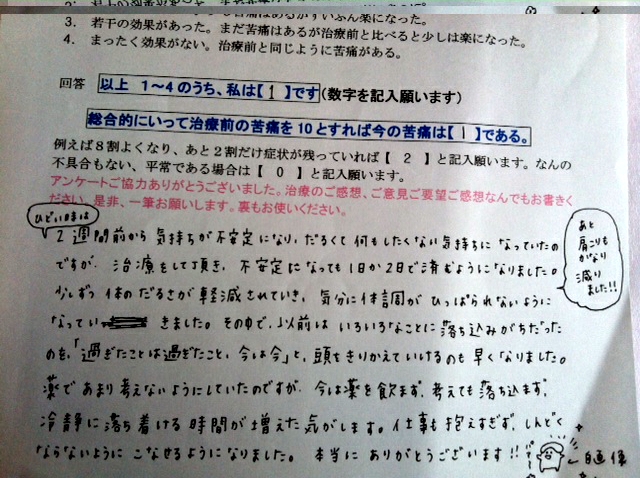 3. 若干の効果があった。まだ苦痛はあるが治療前と比べると少しは楽になった。
4. まったく効果がない。治療前と同じように苦痛がある。
回答 以上 1〜4のうち、私は【 1 】です(数字を記入願います)
総合的にいって治療前の苦痛を10とすれば今の苦痛は【 1 】である。
例えば8割がよくなり、あと2割だけ症状が残っていれば【 2 】と記入願います。なんの
不具合もない、平常である場合は【 0 】と記入願います。
アンケートご協力ありがとうございました。治療のご感想、ご意見ご要望ご感想なんでもお書きく
ださい。是非、一筆お願いします。裏もお使いください。
ひどい時は
2週間前から 気持ちが不安定になり、だるくて何もしたくない気持ちに なっていたの
ですが、治療をして頂き、不安定になっても1日か2日で済むようになりました。
少しずつ 体のだるさが 軽減されていき、気分に体調が ひっぱられないように
なってい きました。その中で、以前は いろいろなことに落ち込みがちだった
のも、「過ぎたことは過ぎたこと、今は今」と、頭をきりかえていけるのも早くなりました。
薬であまり考えないようにしていたのですが、今は薬を飲まず、考えても落ち込まず、
冷静に落ち着ける時間が増えた気がします。仕事も抱えすぎず、しんどく
ならないように こなせるようになりました。本当に ありがとうございます!!
あと
肩こりも
かなり
減り
ました!!
自画像